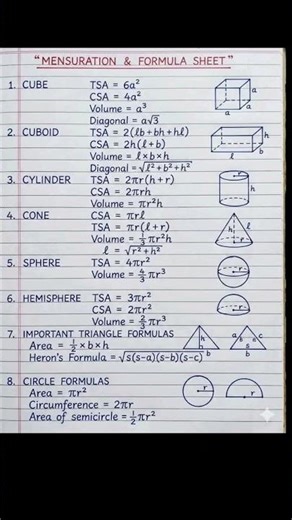 "MENSURATION & FORMULA SHEET"
1. CUBE TSA = 6a²
CSA = 4a²
Volume = a³
Diagonal = a√3
a
a
a
2. CUBOID TSA = 2(lb+bh+hl)
CSA = 2h(l+b)
Volume = l×b×h
Diagonal = √l²+b²+h²
h
b
l
3. CYLINDER TSA = 2πr(h+r)
CSA = 2πrh
Volume = πr²h
r
h
4. CONE CSA = πrl
TSA = πr(l+r)
Volume = 1/3 πr²h
l = √r²+h²
h
l
r
5. SPHERE TSA = 4πr²
Volume = 4/3 πr³
r
6. HEMISPHERE TSA = 3πr²
CSA = 2πr²
Volume = 2/3 πr³
r
7. IMPORTANT TRIANGLE FORMULAS
Area = 1/2 ×b×h
Heron's Formula = √s(s-a)(s-b)(s-c)
h
b
a
c
s
s
b
8. CIRCLE FORMULAS
Area = πr²
Circumference = 2πr
Area of semicircle = 1/2 πr²
r
r